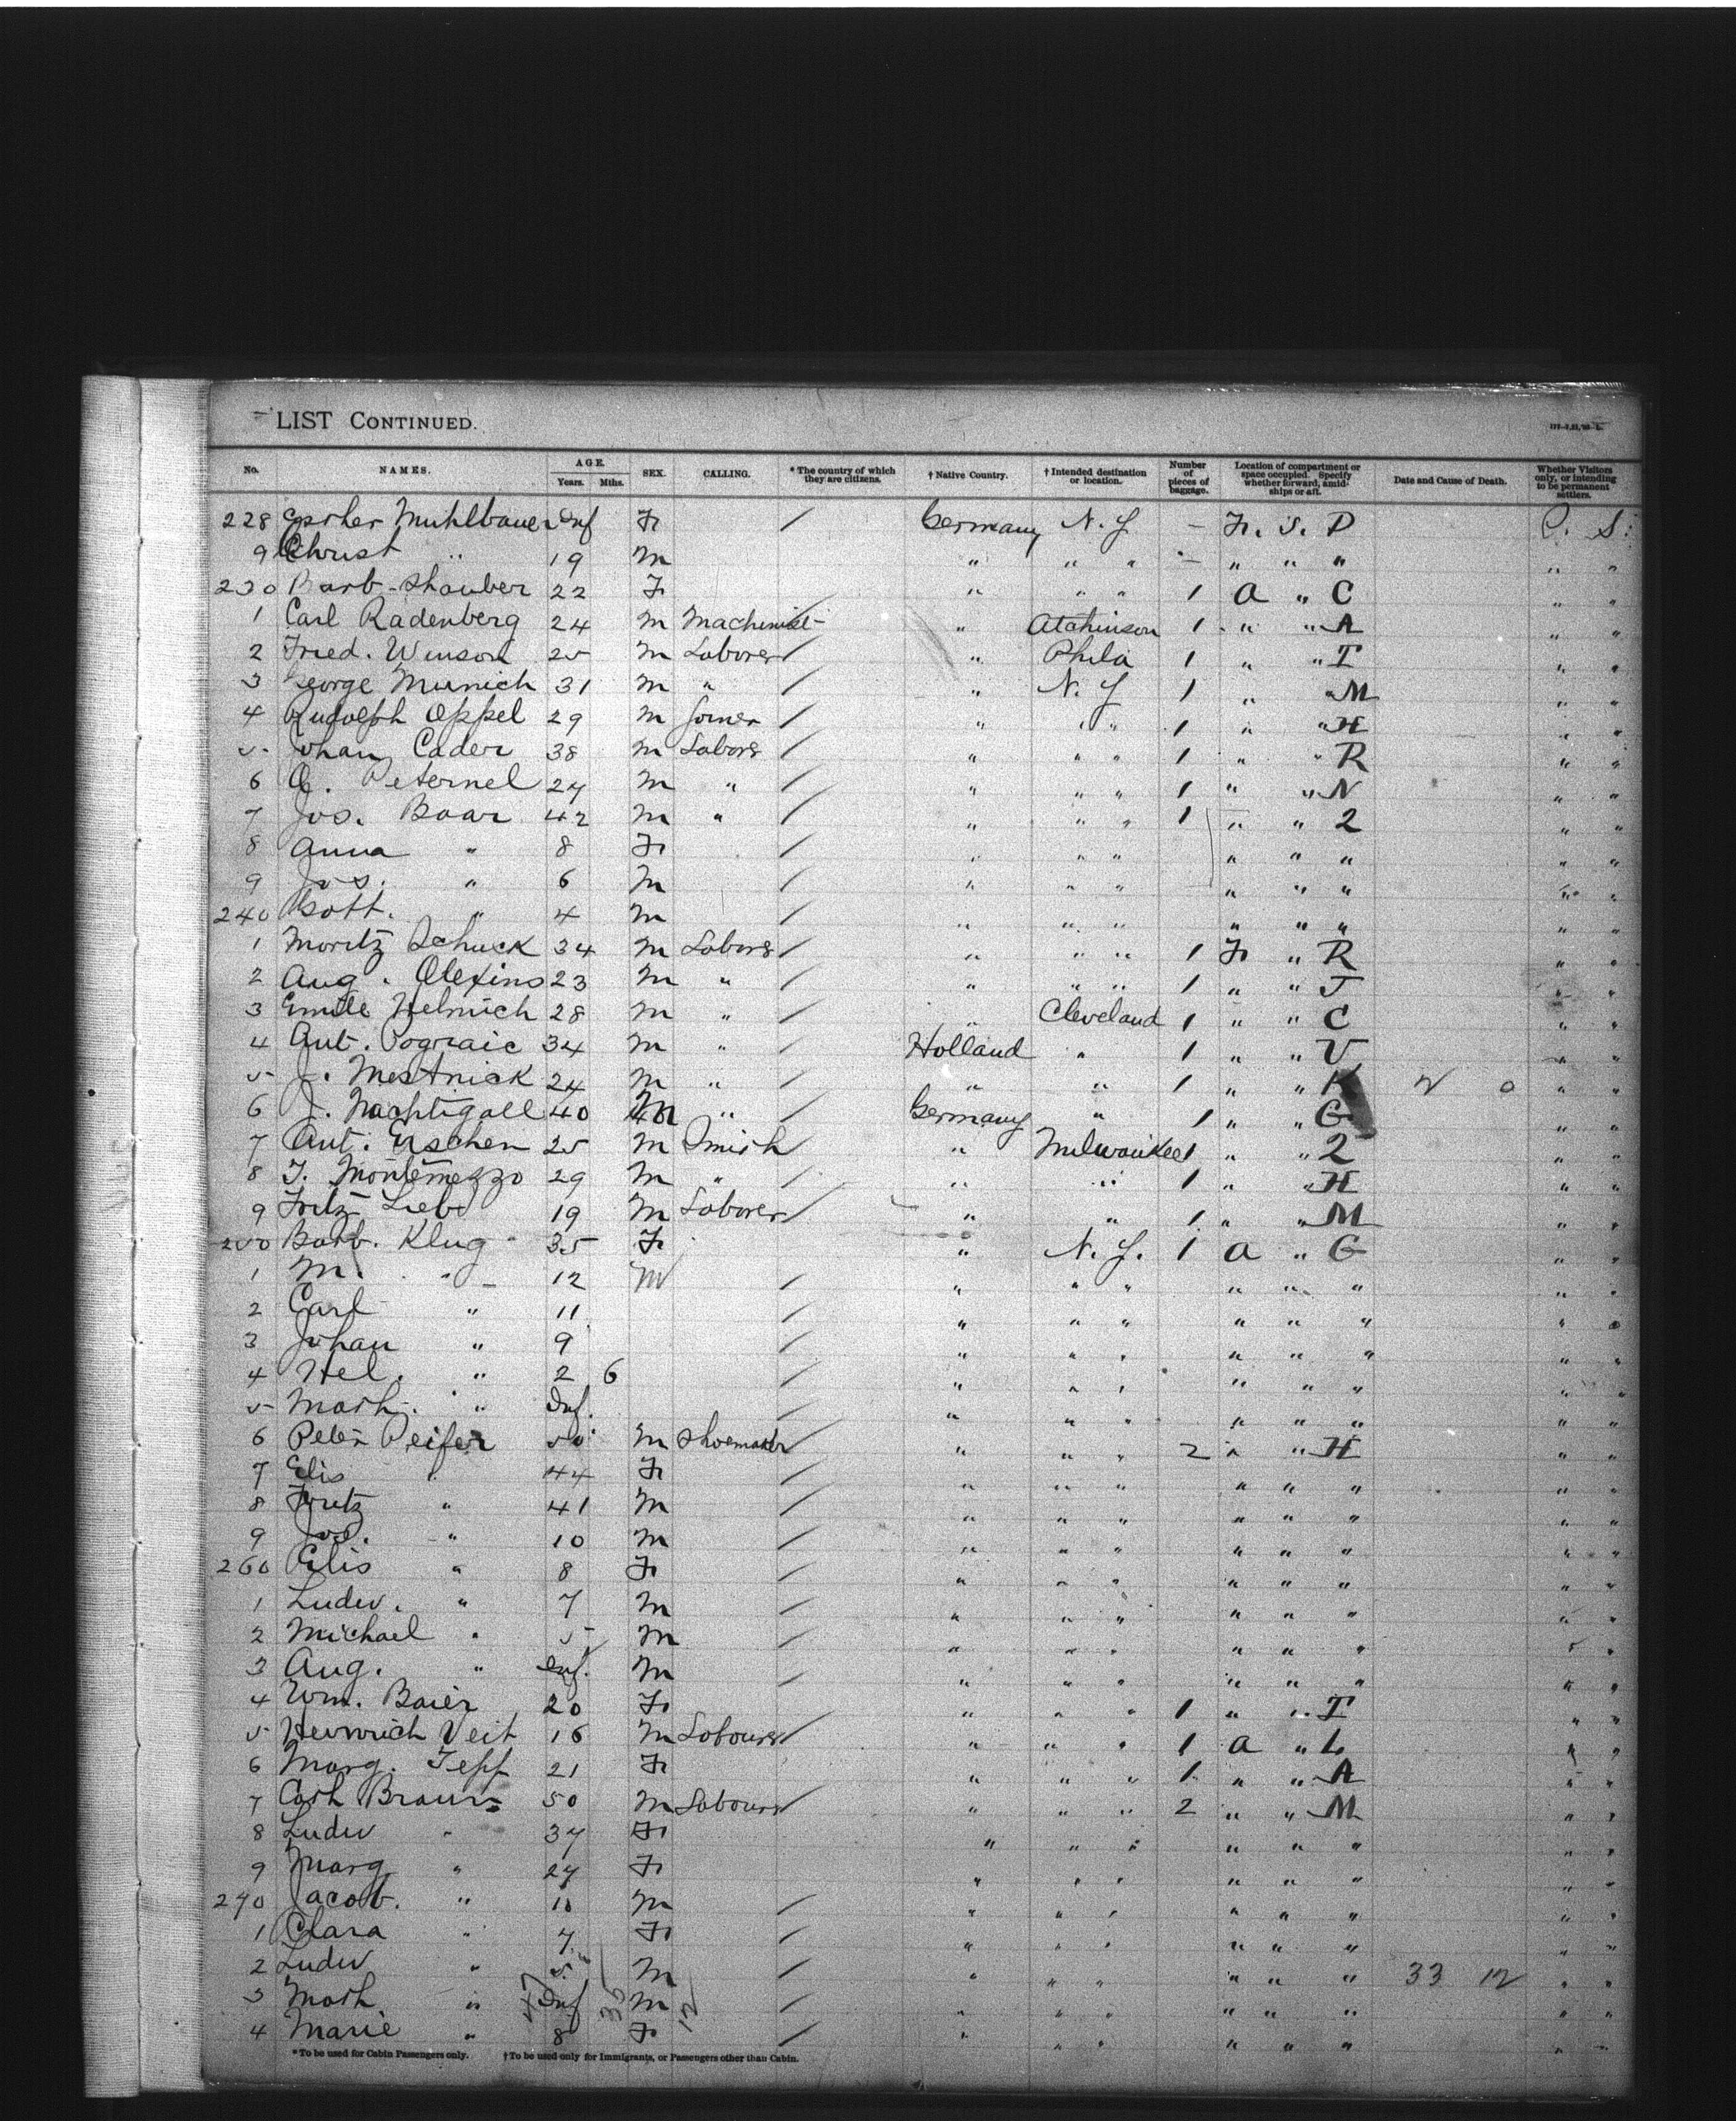 LIST CONTINUED.
No. NAMES. AGE. Years. Mths. SEX. CALLING. * The country of which they are citizens. † Native Country. † Intended destination or location. Number of pieces of baggage. Location of compartment or space occupied. Specify whether forward, amidships or aft. Date and Cause of Death. Whether Visitors only, or intending to be permanent settlers.
228 Esther Muhlbauer Inf F / Germany N. Y. - F. S. P S.
9 Christ " 19 M " " " - " " " " "
230 Barb. Shauber 22 F " " " 1 A " C " "
1 Carl Radenberg 24 M Machinist / " Atchinson 1 " " A " "
2 Fried. Winson 25 M Laborer / " Phila 1 " " T " "
3 George Munich 31 M " / " N. Y 1 " " M " "
4 Rudolph Oppel 29 M Joiner / " " " 1 " " H " "
5 Johann Cader 38 M Labors / " " " 1 " " R " "
6 Peternel 27 M " / " " " 1 " " N " "
7 Jos. Boar 42 M " / " " " 1 " " 2 " "
8 Anna " 8 F / " " " " " " " "
9 Jos. " 6 M / " " " " " " " "
240 Gott. " 4 M / " " " " " " " "
1 Moritz Schuck 34 M Labors / " " " 1 F " R " "
2 Aug. Olexins 23 M " / " " " 1 " " J " "
3 Emile Helmich 28 M " / " Cleveland 1 " " C " "
4 Ant. Pograic 34 M " / Holland " 1 " " V " "
5 J. Mestnick 24 M " / " " 1 " " K " "
6 J. Nachtigall 40 M " / Germany " 1 " " G " "
7 Ant. Erschen 25 M Smith / " Milwaukee 1 " " 2 " "
8 T. Montemezzo 29 M " / " " 1 " " H " "
9 Fritz Liebe 19 M Laborer / " " 1 " " M " "
250 Barb. Klug 35 F " N. Y. 1 A " G " "
1 M. " 12 M / " " " " " " " "
2 Carl " 11 / " " " " " " " "
3 Johan " 9 / " " " " " " " "
4 Hel. " 2 6 / " " " " " " " "
5 Math. " Inf. / " " " " " " " "
6 Peter Peifer 50 M Shoemaker / " " " 2 " " H " "
7 Elis " 44 F / " " " " " " " "
8 Fritz " 41 M / " " " " " " " "
9 Jos. " 10 M / " " " " " " " "
260 Elis " 8 F / " " " " " " " "
1 Ludw. " 7 M / " " " " " " " "
2 Michael " 5 M / " " " " " " " "
3 Aug. " Inf. M / " " " " " " " "
4 Wm. Baier 20 F " " " 1 " " T " "
5 Heinrich Veit 16 M Labourer / " " " 1 A " L " "
6 Marg. Tepp 21 F " " " 1 " " A " "
7 Cath Braun 50 M Labourer / " " " 2 " " M " "
8 Ludw " 37 F " " " " " " " "
9 Marg " 27 F " " " " " " " "
270 Jacob. " 10 M / " " " " " " " "
1 Clara " 7 F / " " " " " " " "
2 Ludw " 5 M / " " " " " " 33 12 " "
3 Math. " Inf M / " " " " " " " "
4 Marie " 8 F / " " " " " " " "
* To be used for Cabin Passengers only. † To be used only for Immigrants, or Passengers other than Cabin.